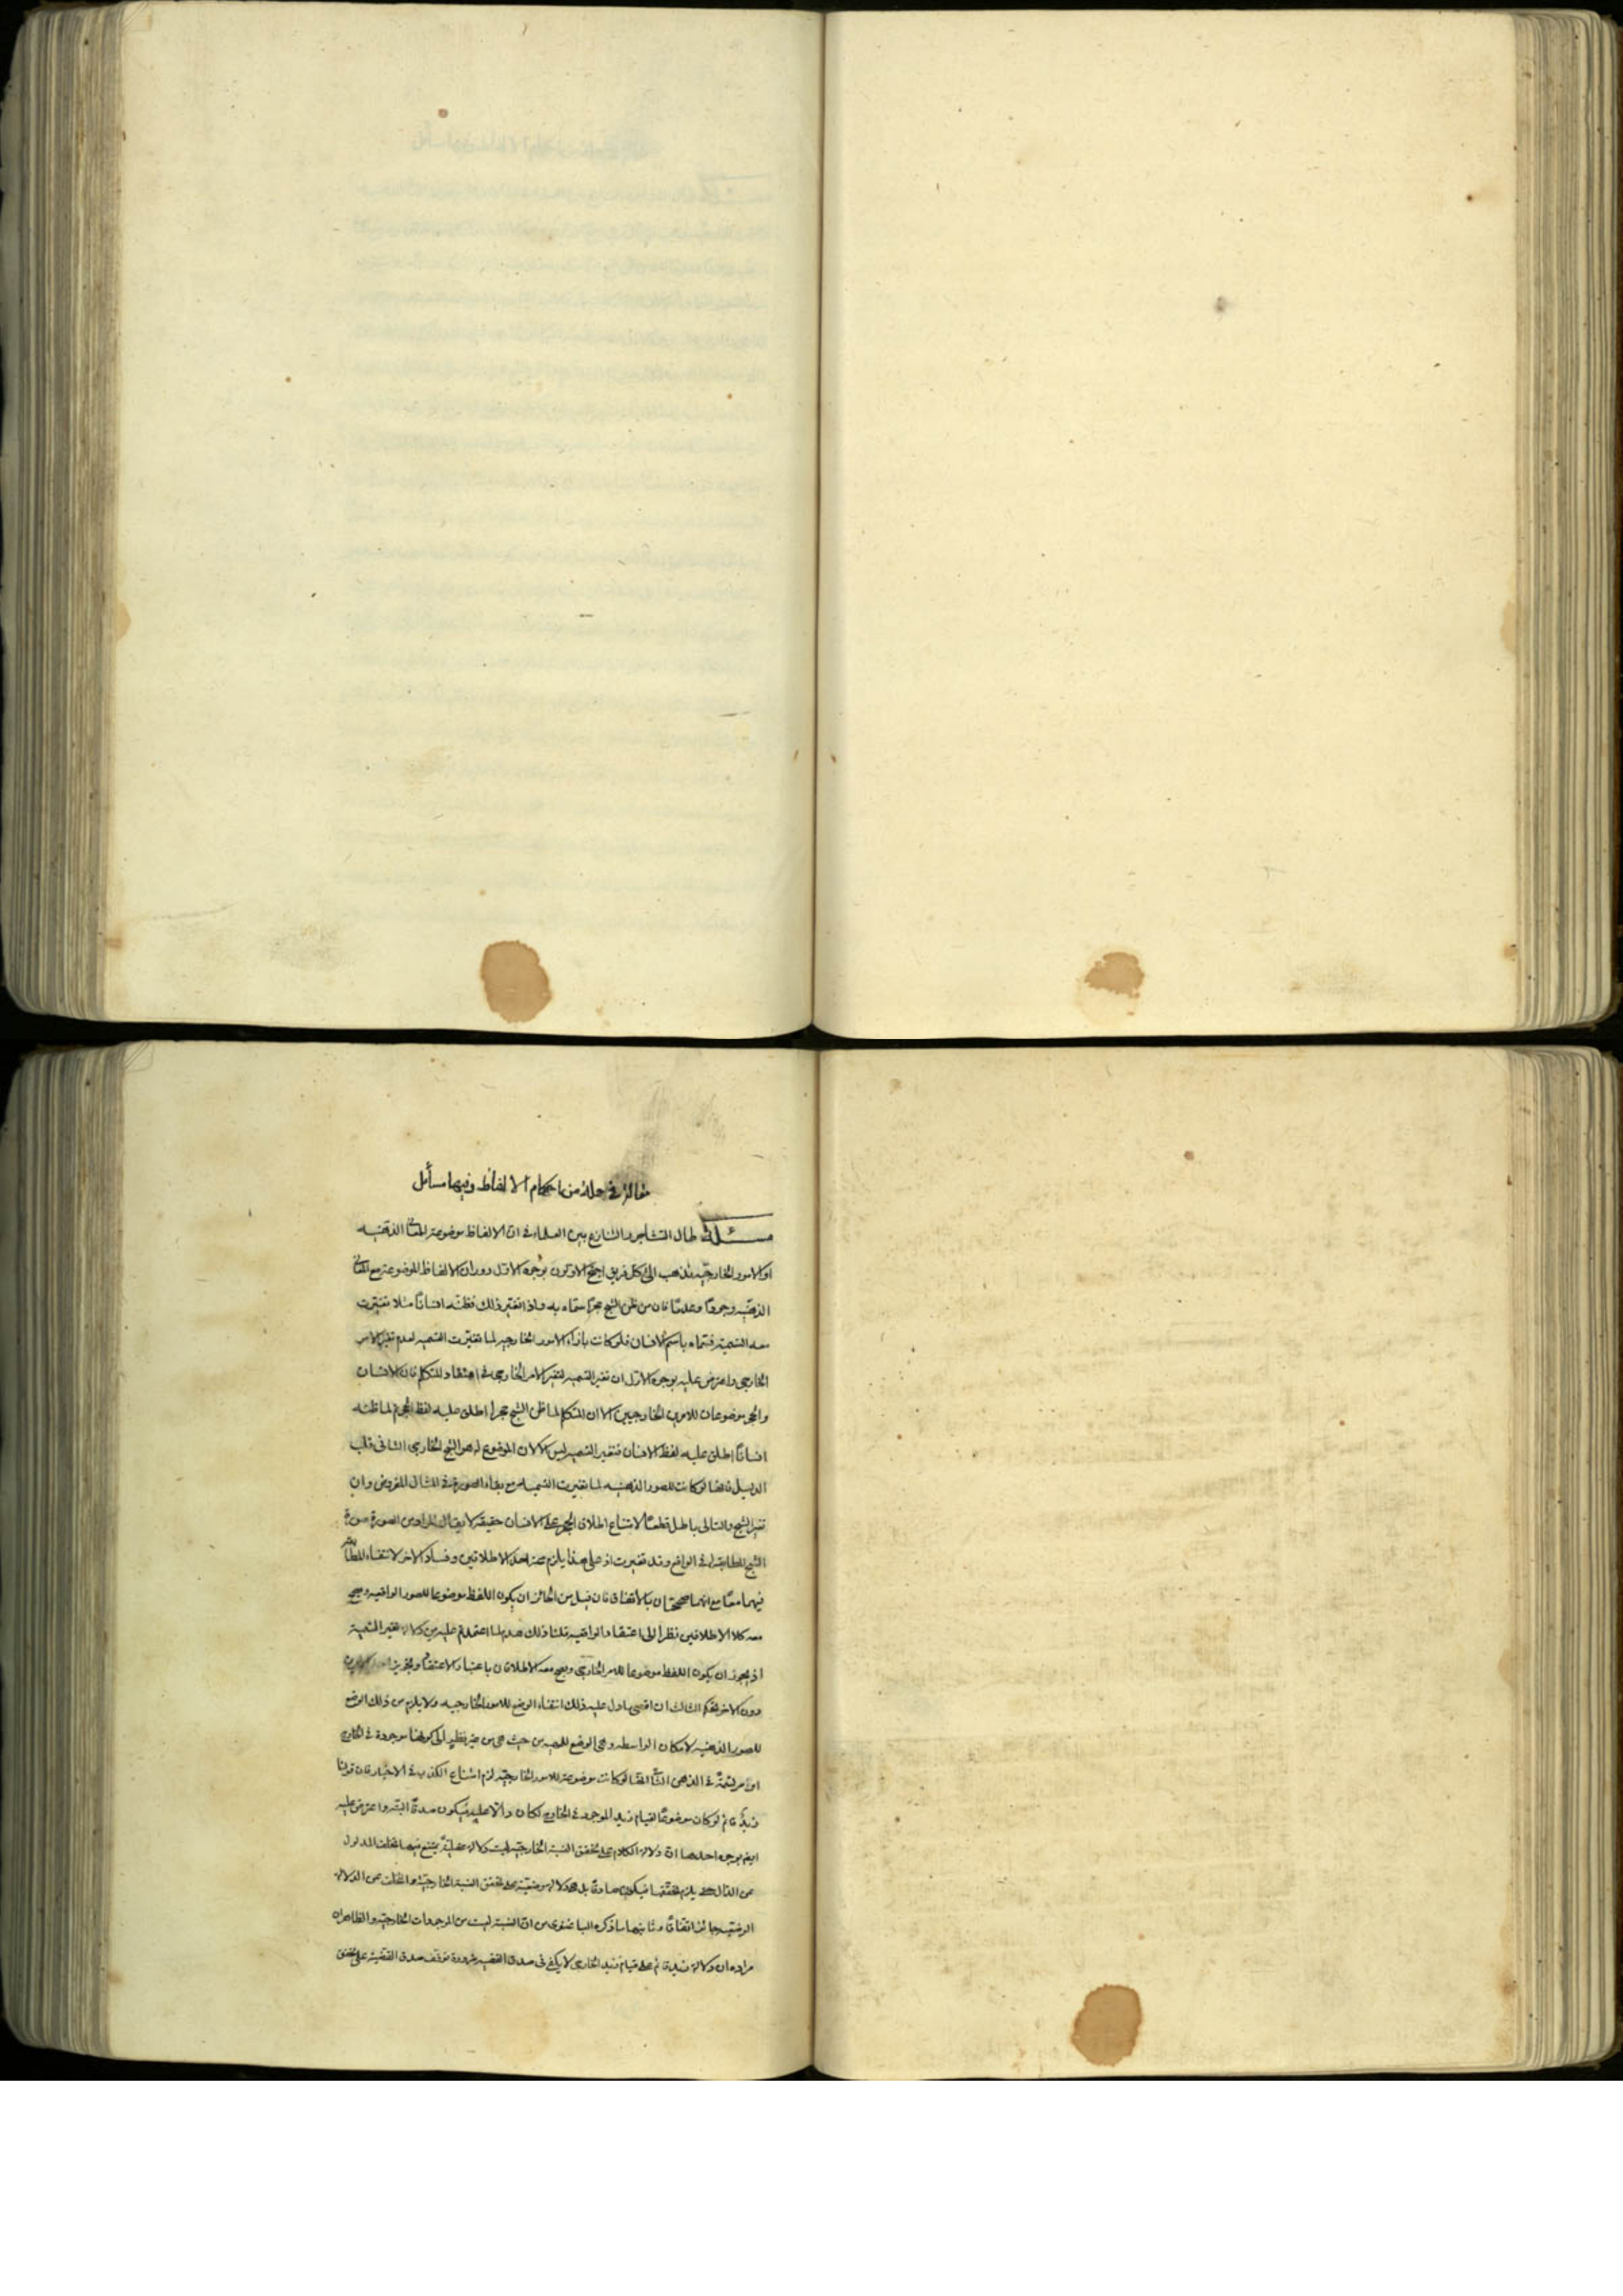 مقالة في جملة من احكام الالفاظ وفيها مسائل
مسئلة طال التشاجر والتنازع بين العلماء في ان الالفاظ موضوعة للمعاني الذهنيه
او الامور الخارجيه فذهب الى كل فريق احتج الاولون بوجوه الاول دوران الالفاظ الموضوعة مع المعاني
الذهنيه وجودًا وعدمًا فان من ظن الشبح حجرًا سماه به واذا تغير ذلك فظنه انسانًا مثلا تغيرت
معه التسمية فسماه باسم الانسان فلو كانت بازاء الامور الخارجيه لما تغيرت التسميه لعدم تغير الامر
الخارجي واعترض عليه بوجوه الاول ان تغير التسميه لتغير الامر الخارجي في اعتقاد المتكلم فان الانسان
والحجر موضوعان للامرين الخارجيين الا ان المتكلم لما ظن الشبح حجرا اطلق عليه لفظ الحجر ثم لما ظنه
انسانًا اطلق عليه لفظ الانسان فتغير التسميه ليس الا لان الموضوع له هو الشبح الخارجي الثاني قلب
الدليل فانها لو كانت للصور الذهنيه لما تغيرت التسمية مع بقاء الصورة في المثال المفروض وان
تغير الشبح والتالى باطل قطعًا لامتناع اطلاق الحجر على الانسان حقيقة لا يقال المراد من الصورة صورة
الشبح المطابقة لما في الواقع وقد تغيرت اذ على هذا يلزم صحة احد الاطلاقين وفساد الاخر لانتفاء المطابقة
فيهما معًا مع انهما صحيحتان بالاتفاق فان قيل من الجائز ان يكون اللفظ موضوعا للصور الواقعيه ويصح
معه كلا الاطلاقين نظرا الى اعتقاد الواقعيه قلنا ذلك هدم لما اعتمدتم عليه من دلالة تغير التسمية
اذ يجوز ان يكون اللفظ موضوعا للامر الخارجي ويصح معه الاطلاقان باعتبار الاعتقاد وتجويز احد الامرين
دون الاخر تحكم الثالث ان اقصى ما دل عليه ذلك انتفاء الوضع للامور الخارجيه ولا يلزم من ذلك الوضع
للصور الذهنيه لامكان الواسطه وهي الوضع للماهيه من حيث هي من غير نظر الى كونها موجودة في الخارج
او مرتسمة في الذهن الثاني انها لو كانت موضوعة للامور الخارجيه لزم امتناع الكذب في الاخبار فان قولنا
زيد قائم لو كان موضوعًا لقيام زيد الموجود في الخارج لكان دالا عليه فيكون صدقًا البته واعترض عليه
ايضا بوجوه احدها ان دلالة الكلام على تحقق النسبة الخارجيه ليست دلالة عقلية يمتنع فيها تخلف المدلول
عن الدال حتى يلزم تحققها فيكون صادقًا بل هو دلالة وضعية على تحقق النسبة الخارجيه والتخلف عن الدلالة
الوضعيه جائز اتفاقًا وثانيها ما ذكره الباغنوى من ان النسبة ليست من الموجودات الخارجيه والظاهر ان
مراده ان دلالة زيد قائم على قيام زيد الخارجي لا يكفى في صدق القضيه ضرورة توقف صدق القضية على تحقق